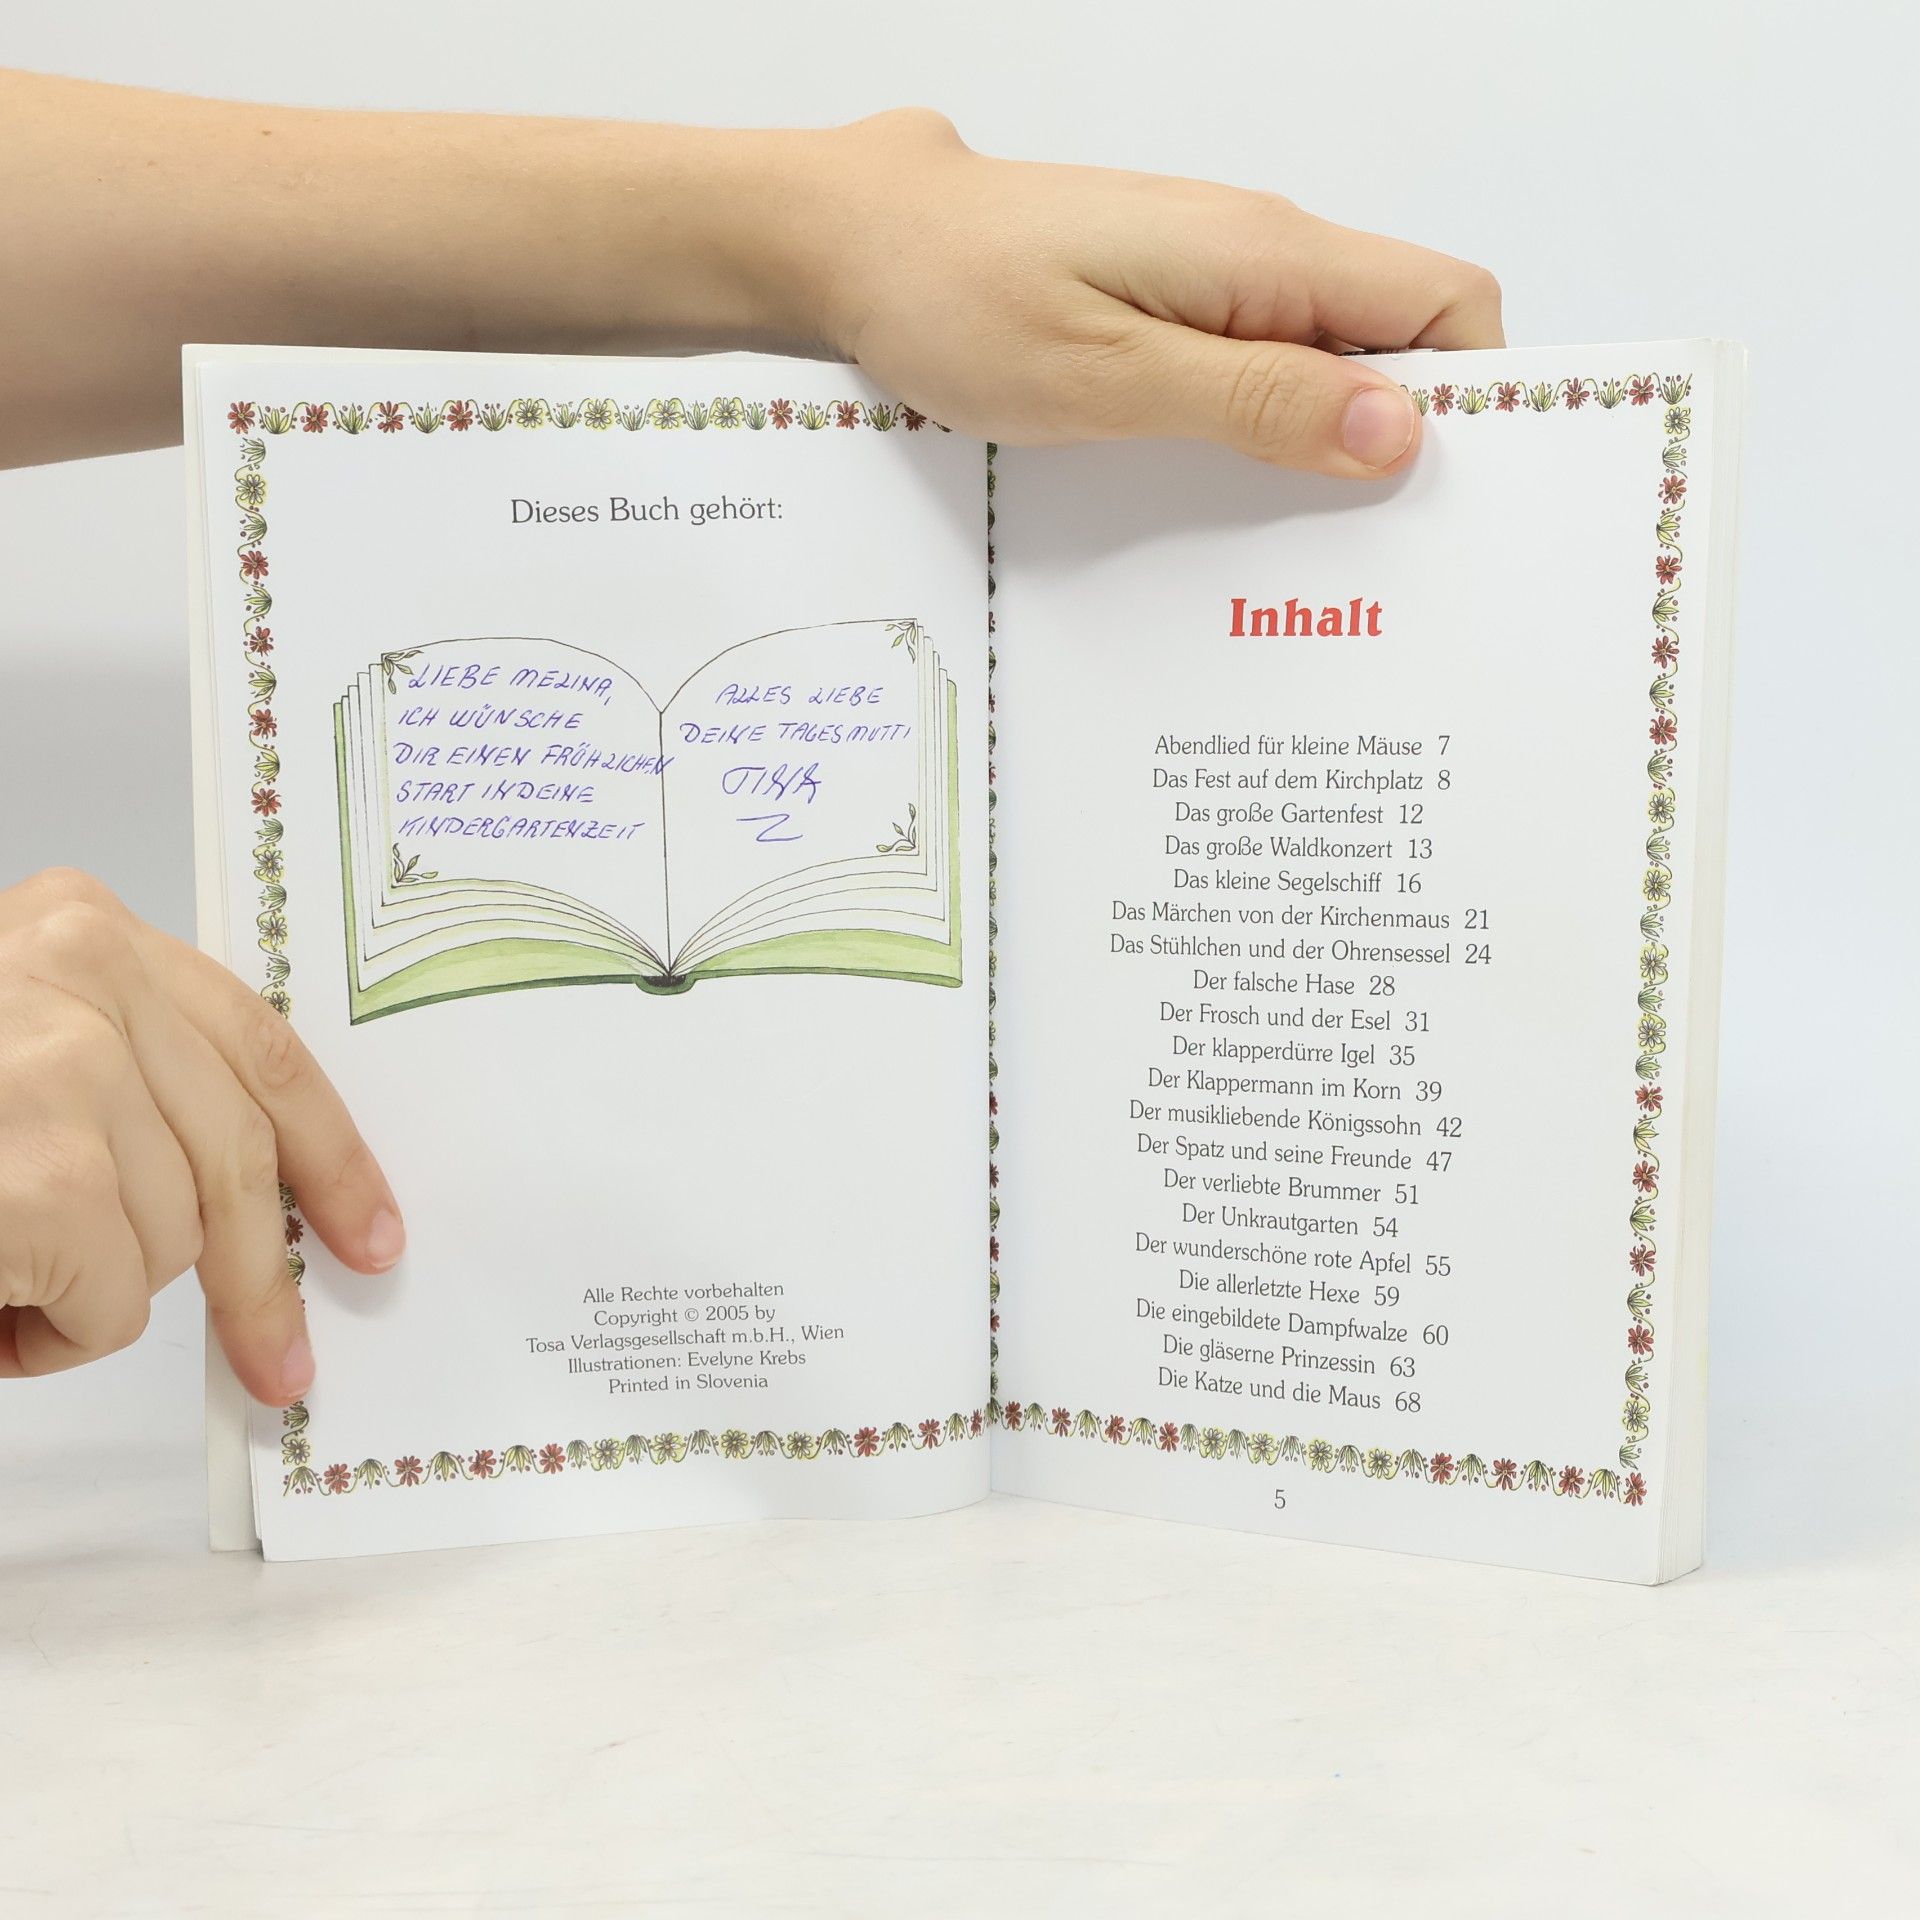 Dieses Buch gehört:
LIEBE MELINA,
ICH WÜNSCHE
DIR EINEN FRÖHLICHEN
START IN DEINE
KINDERGARTENZEIT
ALLES LIEBE
DEINE TAGESMUTTI
TINA
Alle Rechte vorbehalten
Copyright © 2005 by
Tosa Verlagsgesellschaft m.b.H., Wien
Illustrationen: Evelyne Krebs
Printed in Slovenia
Inhalt
Abendlied für kleine Mäuse 7
Das Fest auf dem Kirchplatz 8
Das große Gartenfest 12
Das große Waldkonzert 13
Das kleine Segelschiff 16
Das Märchen von der Kirchenmaus 21
Das Stühlchen und der Ohrensessel 24
Der falsche Hase 28
Der Frosch und der Esel 31
Der klapperdürre Igel 35
Der Klappermann im Korn 39
Der musikliebende Königssohn 42
Der Spatz und seine Freunde 47
Der verliebte Brummer 51
Der Unkrautgarten 54
Der wunderschöne rote Apfel 55
Die allerletzte Hexe 59
Die eingebildete Dampfwalze 60
Die gläserne Prinzessin 63
Die Katze und die Maus 68
5